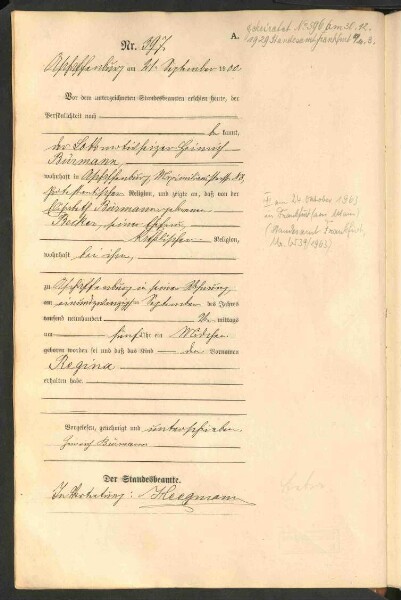 A.
Nr. 397.
geheiratet No 596 am
1929 Standesamt Frankfurt a/M. 3.
Aschaffenburg am 21. September 1900
Vor dem unterzeichneten Standesbeamten erschien heute, der
Persönlichkeit nach
be kannt,
der Lokomotivheizer Heinrich
Bürmann
wohnhaft in Aschaffenburg,
protestantischer Religion, und zeigte an, daß von der
Bürmann geborene
Becker, seiner Ehefrau,
katholischer Religion,
wohnhaft bei ihm,
zu Aschaffenburg in seiner Wohnung
am einundzwanzigsten September des Jahres
tausend neunhundert Vor mittags
um fünf Uhr ein Mädchen
geboren worden sei und daß das Kind den Vornamen
Regina
erhalten habe.
† am 24. Oktober 1963
in Frankfurt am Main
(Standesamt Frankfurt,
Vorgelesen, genehmigt und unterschrieben.
Heinrich Bürmann
Der Standesbeamte.
In Vertretung: Heegmann